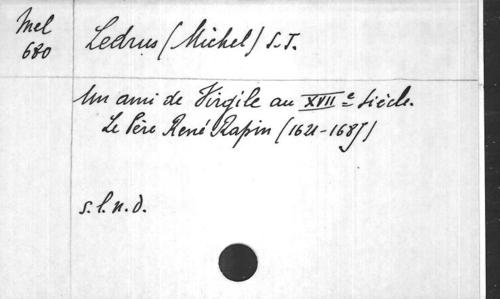 Mel
680
Ledrus (Michel) S.J.
Un ami de Virgile au XVIIe Siècle.
Le Père René Rapin (1621-1687)
s.l.n.d.